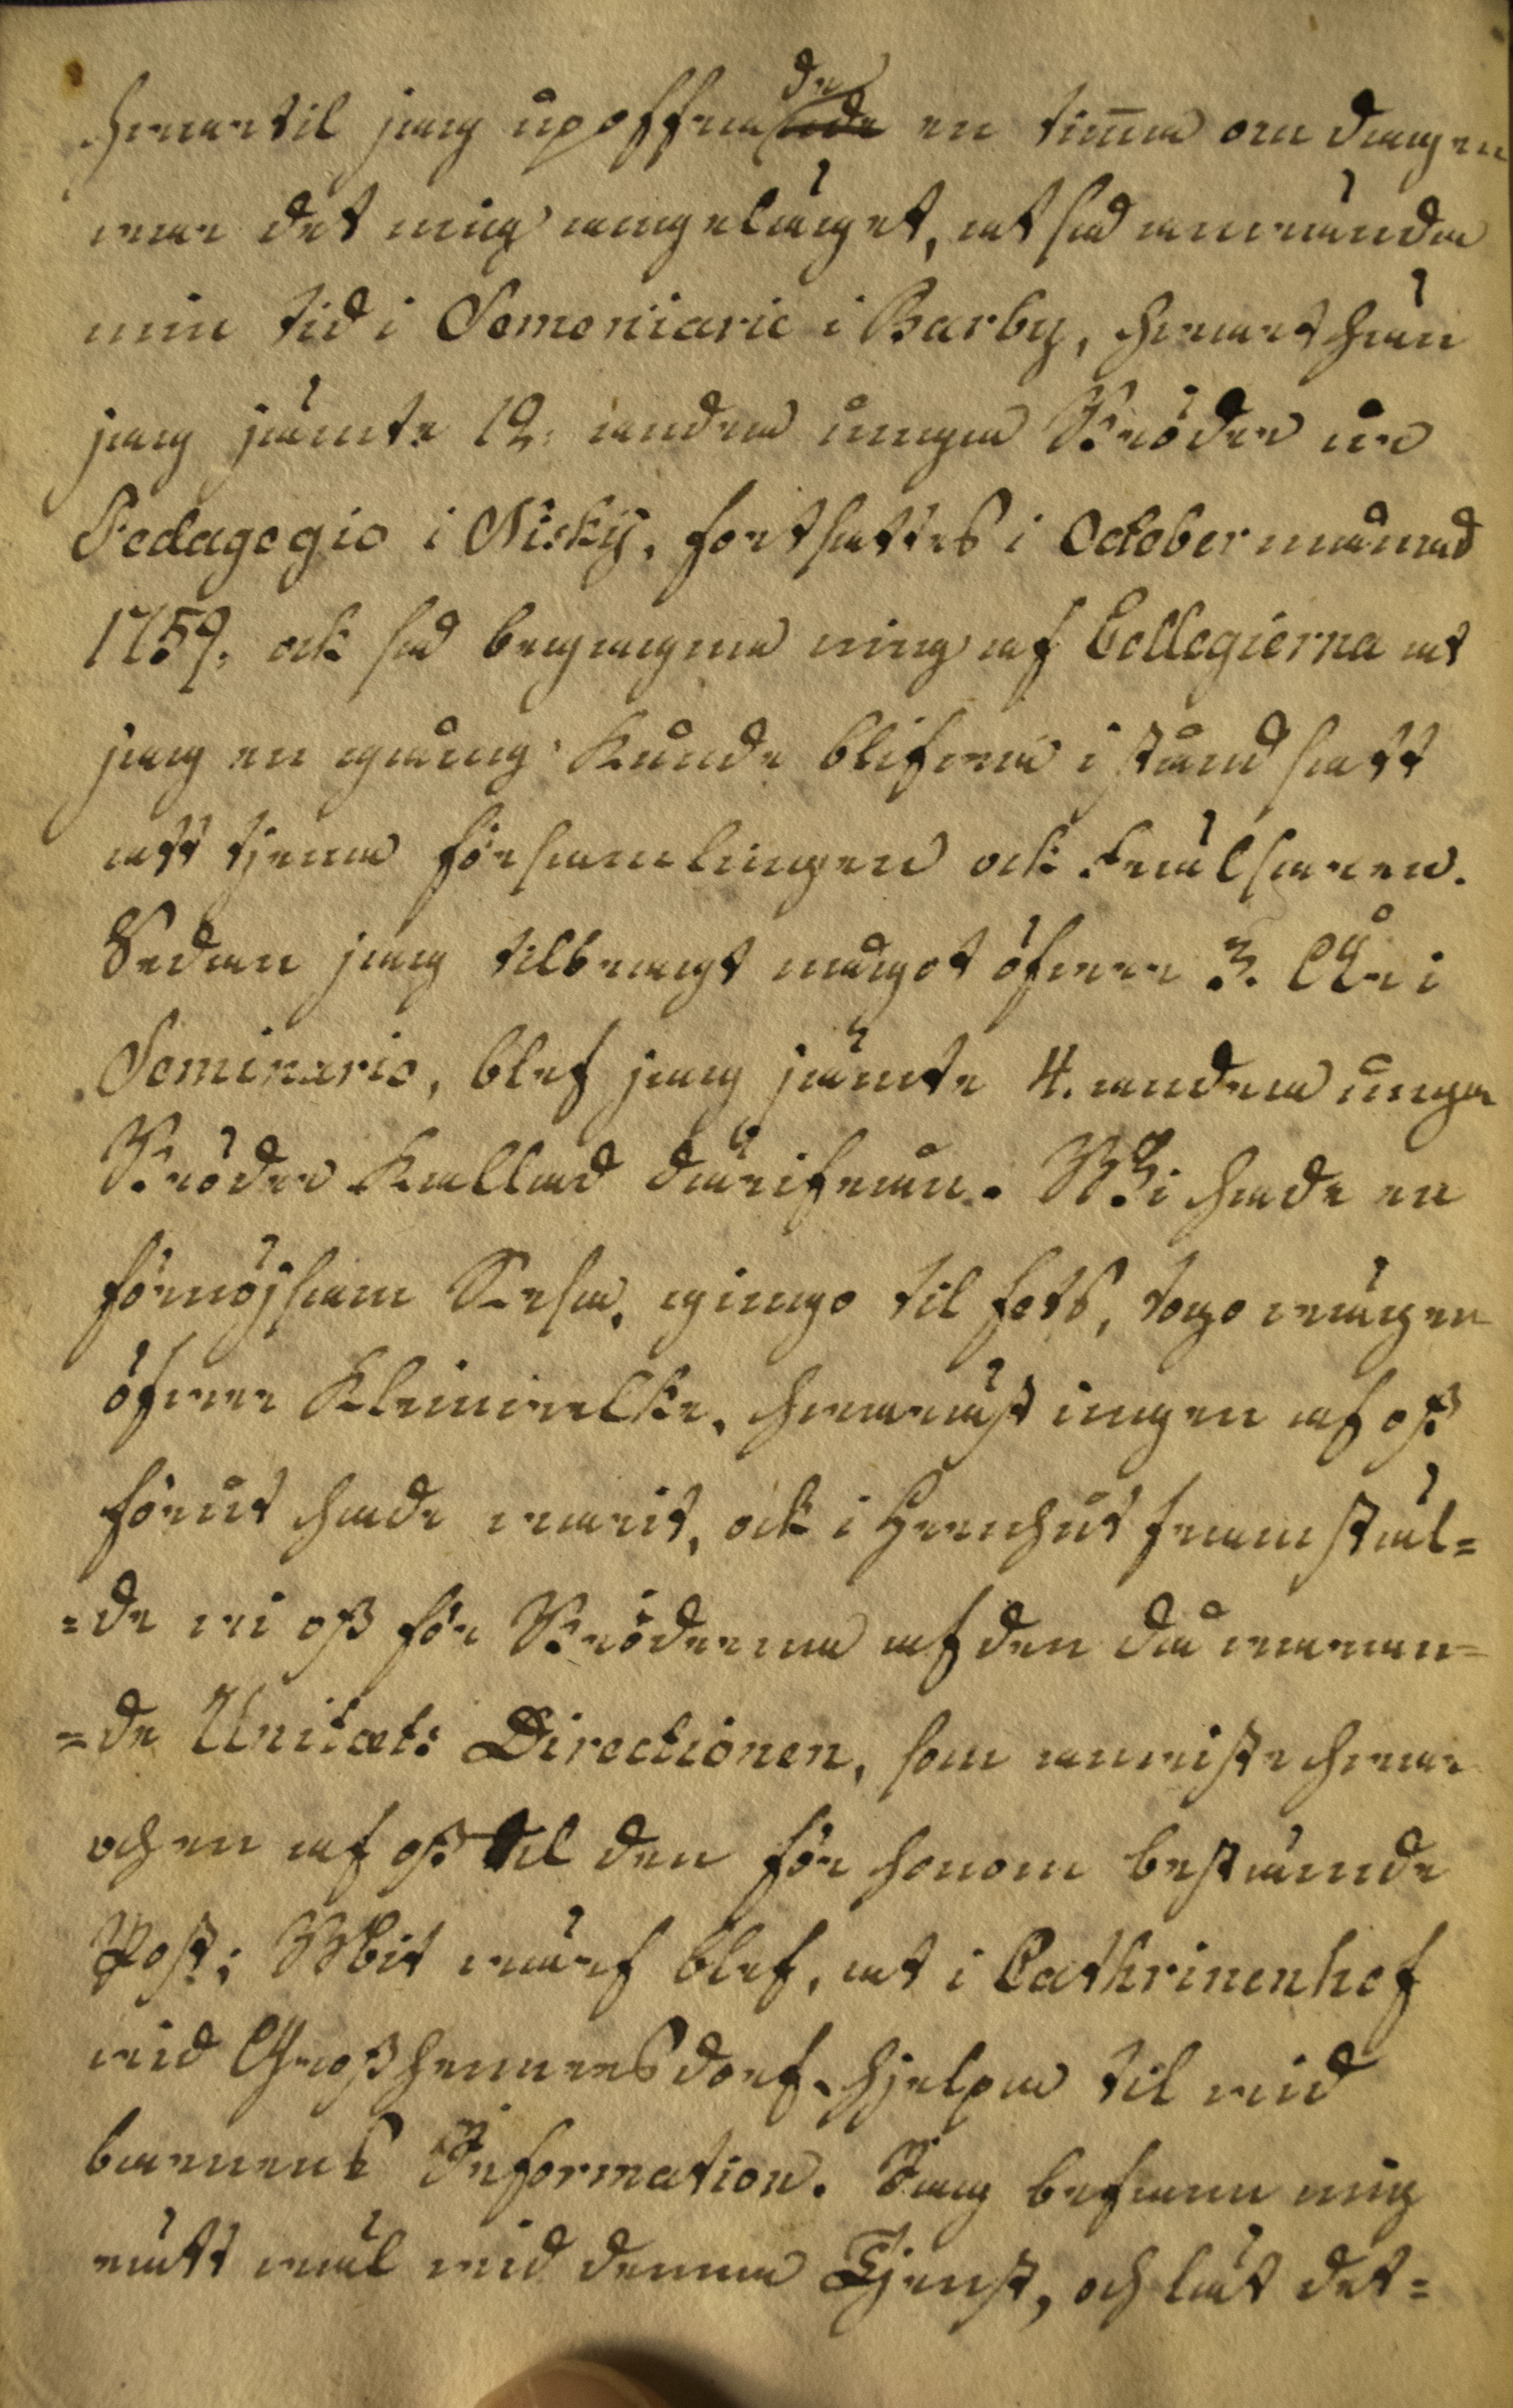 hwartil jag upoffrade en tima om dagen
war det mig angeläget, at så använda
min tid i Semeniario i Barby, hwarthän
jag jämte 12. andra unga Bröder ur
Pedagogio i Nisky, fortsattes i October månad
1759. ock så begagna mig af Collegierna at
jag en gång kunde blifwa i stånd satt
att tjena församlingen ock Frälsaren.
Sedan jag tilbragt något öfwer 3. År i
Seminario, blef jag jämte 4. andra unga
Bröder kallad därifrån. Wi hade en
förnöjsam Resa, gingo til fots, togo wägen
öfwer Kleinwelke, hwaräst ingen af oß
förut hade warit, ock i Herrnhut framstäl=
=de wi oß för Bröderna af den då waran=
=de Unitæts Directionen, som anwiste hwar
ochen af oß til den för honom bestämde
Post; Mit wärf blef, at i Cathrinenhof
wid Großhennersdorf hjelpa til wid
barnens Information. Jag befann mig
rätt wäl wid denna Tjenst, och lät det=